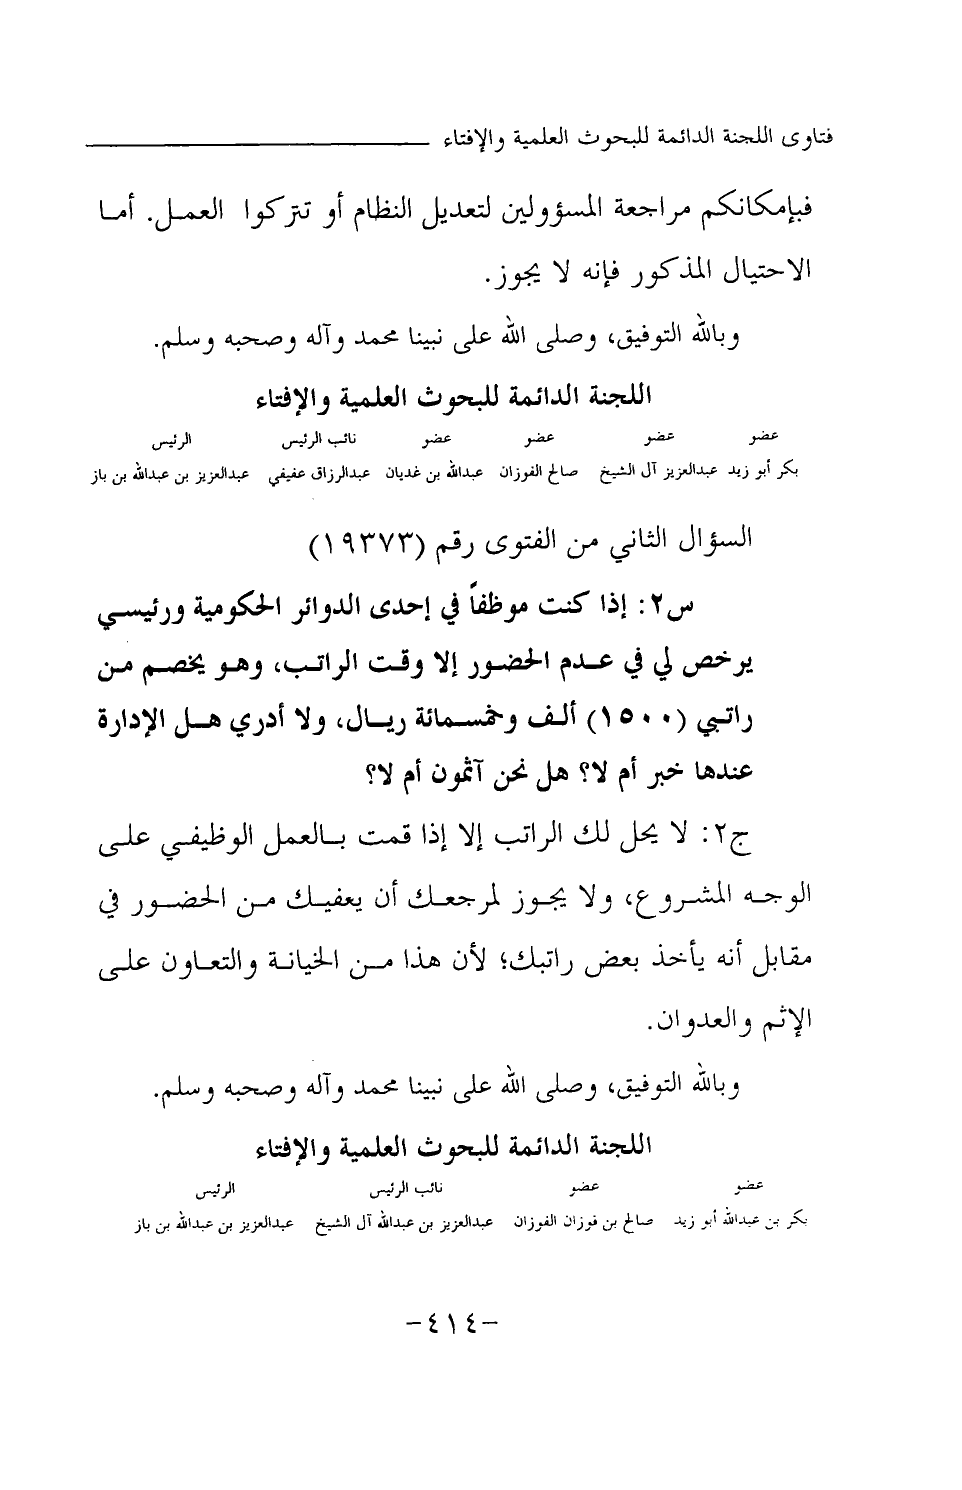 فتاوى اللجنة الدائمة للبحوث العلمية والإفتاء
فبإمكانكم مراجعة المسؤولين لتعديل النظام أو تتركوا العمل. أما
الاحتيال المذكور فإنه لا يجوز.
وبالله التوفيق، وصلى الله على نبينا محمد وآله وصحبه وسلم.
اللجنة الدائمة للبحوث العلمية والإفتاء
عضو عضو عضو عضو نائب الرئيس الرئيس
بكر أبو زيد عبدالعزيز آل الشيخ صالح الفوزان عبدالله بن غديان عبدالرزاق عفيفي عبدالعزيز بن عبدالله بن باز
السؤال الثاني من الفتوى رقم (١٩٣٧٣)
س٢: إذا كنت موظفاً في إحدى الدوائر الحكومية ورئيسي
يرخص لي في عدم الحضور إلا وقت الراتب، وهو يخصم من
راتبي (١٥٠٠) ألف وخمسمائة ريال، ولا أدري هل الإدارة
عندها خبر أم لا؟ هل نحن آثمون أم لا؟
ج٢: لا يحل لك الراتب إلا إذا قمت بالعمل الوظيفي على
الوجه المشروع، ولا يجوز لمرجعك أن يعفيك من الحضور في
مقابل أنه يأخذ بعض راتبك؛ لأن هذا من الخيانة والتعاون على
الإثم والعدوان.
وبالله التوفيق، وصلى الله على نبينا محمد وآله وصحبه وسلم.
اللجنة الدائمة للبحوث العلمية والإفتاء
عضو عضو نائب الرئيس الرئيس
بكر بن عبدالله أبو زيد صالح بن فوزان الفوزان عبدالعزيز بن عبدالله آل الشيخ عبدالعزيز بن عبدالله بن باز
-٤١٤-